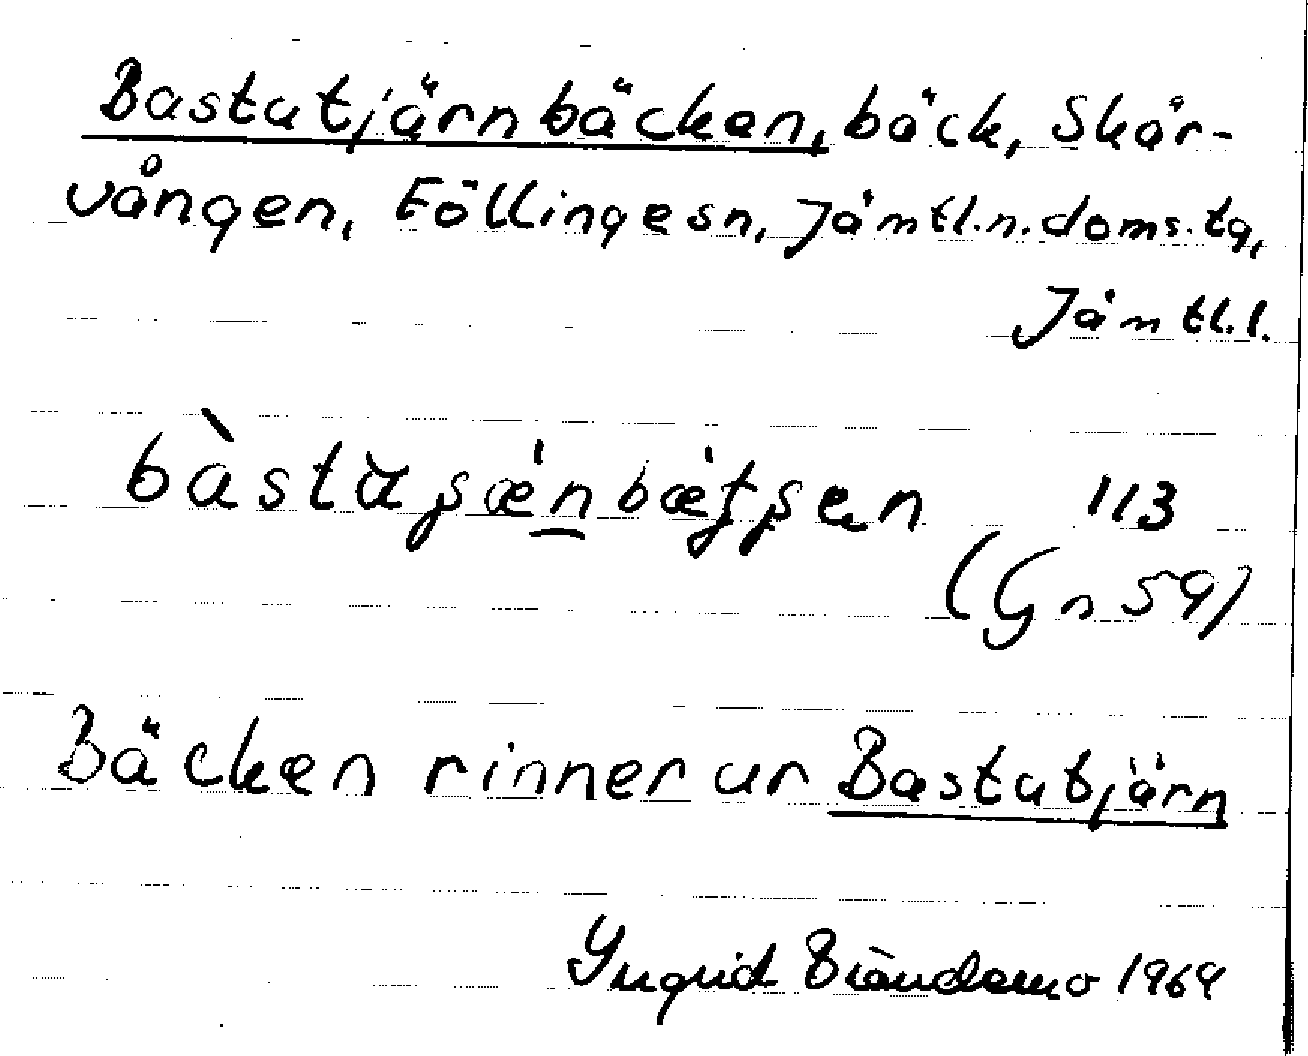 Bastutjärnbäcken, bäck, Skår-
vången, Föllinge sn, Jämtl.n.doms.tg,
Jämtl.l.
113
(Gn 59)
Bäcken rinner ur Bastutjärn
Ingrid 1969